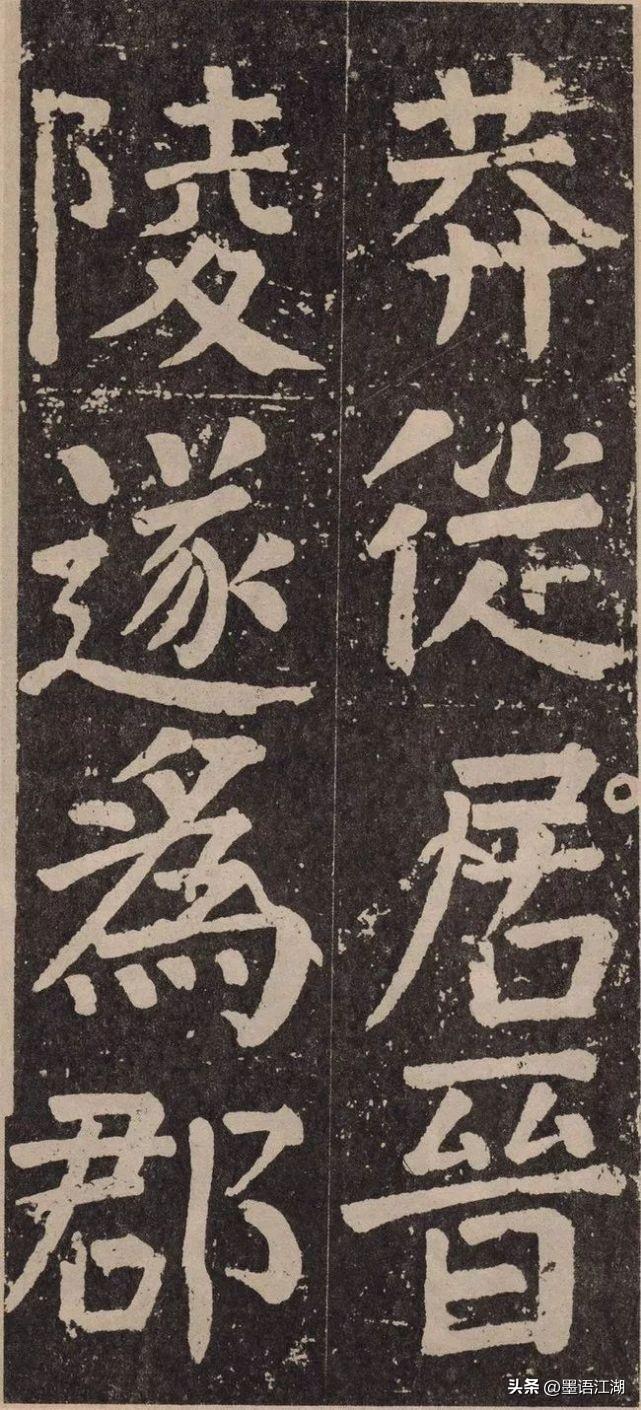 莽從居晉
陵遂為郡
头条 @墨语江湖